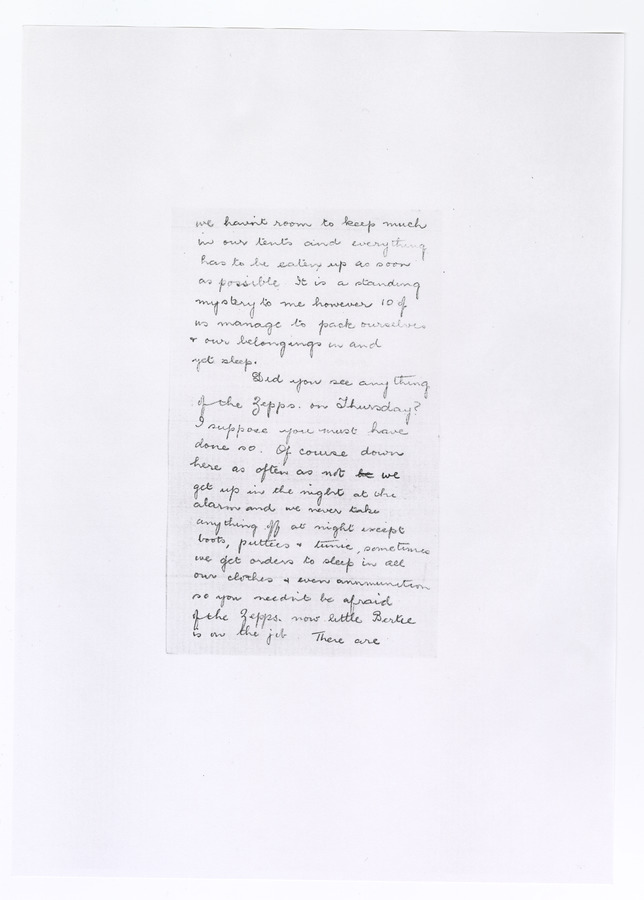 we havn't room to keep much
in our tents and everything
has to be eaten up as soon
as possible It is a standing
mystery to me however 10 of
us manage to pack ourselves
& our belongings in and
yet sleep.
Did you see anything
of the Zepps. on Thursday?
I suppose you must have
done so. Of course down
here as often as not be we
get up in the night at the
alarm and we never take
anything off at night except
boots, puttees & tunic, sometimes
we get orders to sleep in all
our clothes & even ammunition
so you needn't be afraid
of the Zepps. now little Bertie
is on the job There are